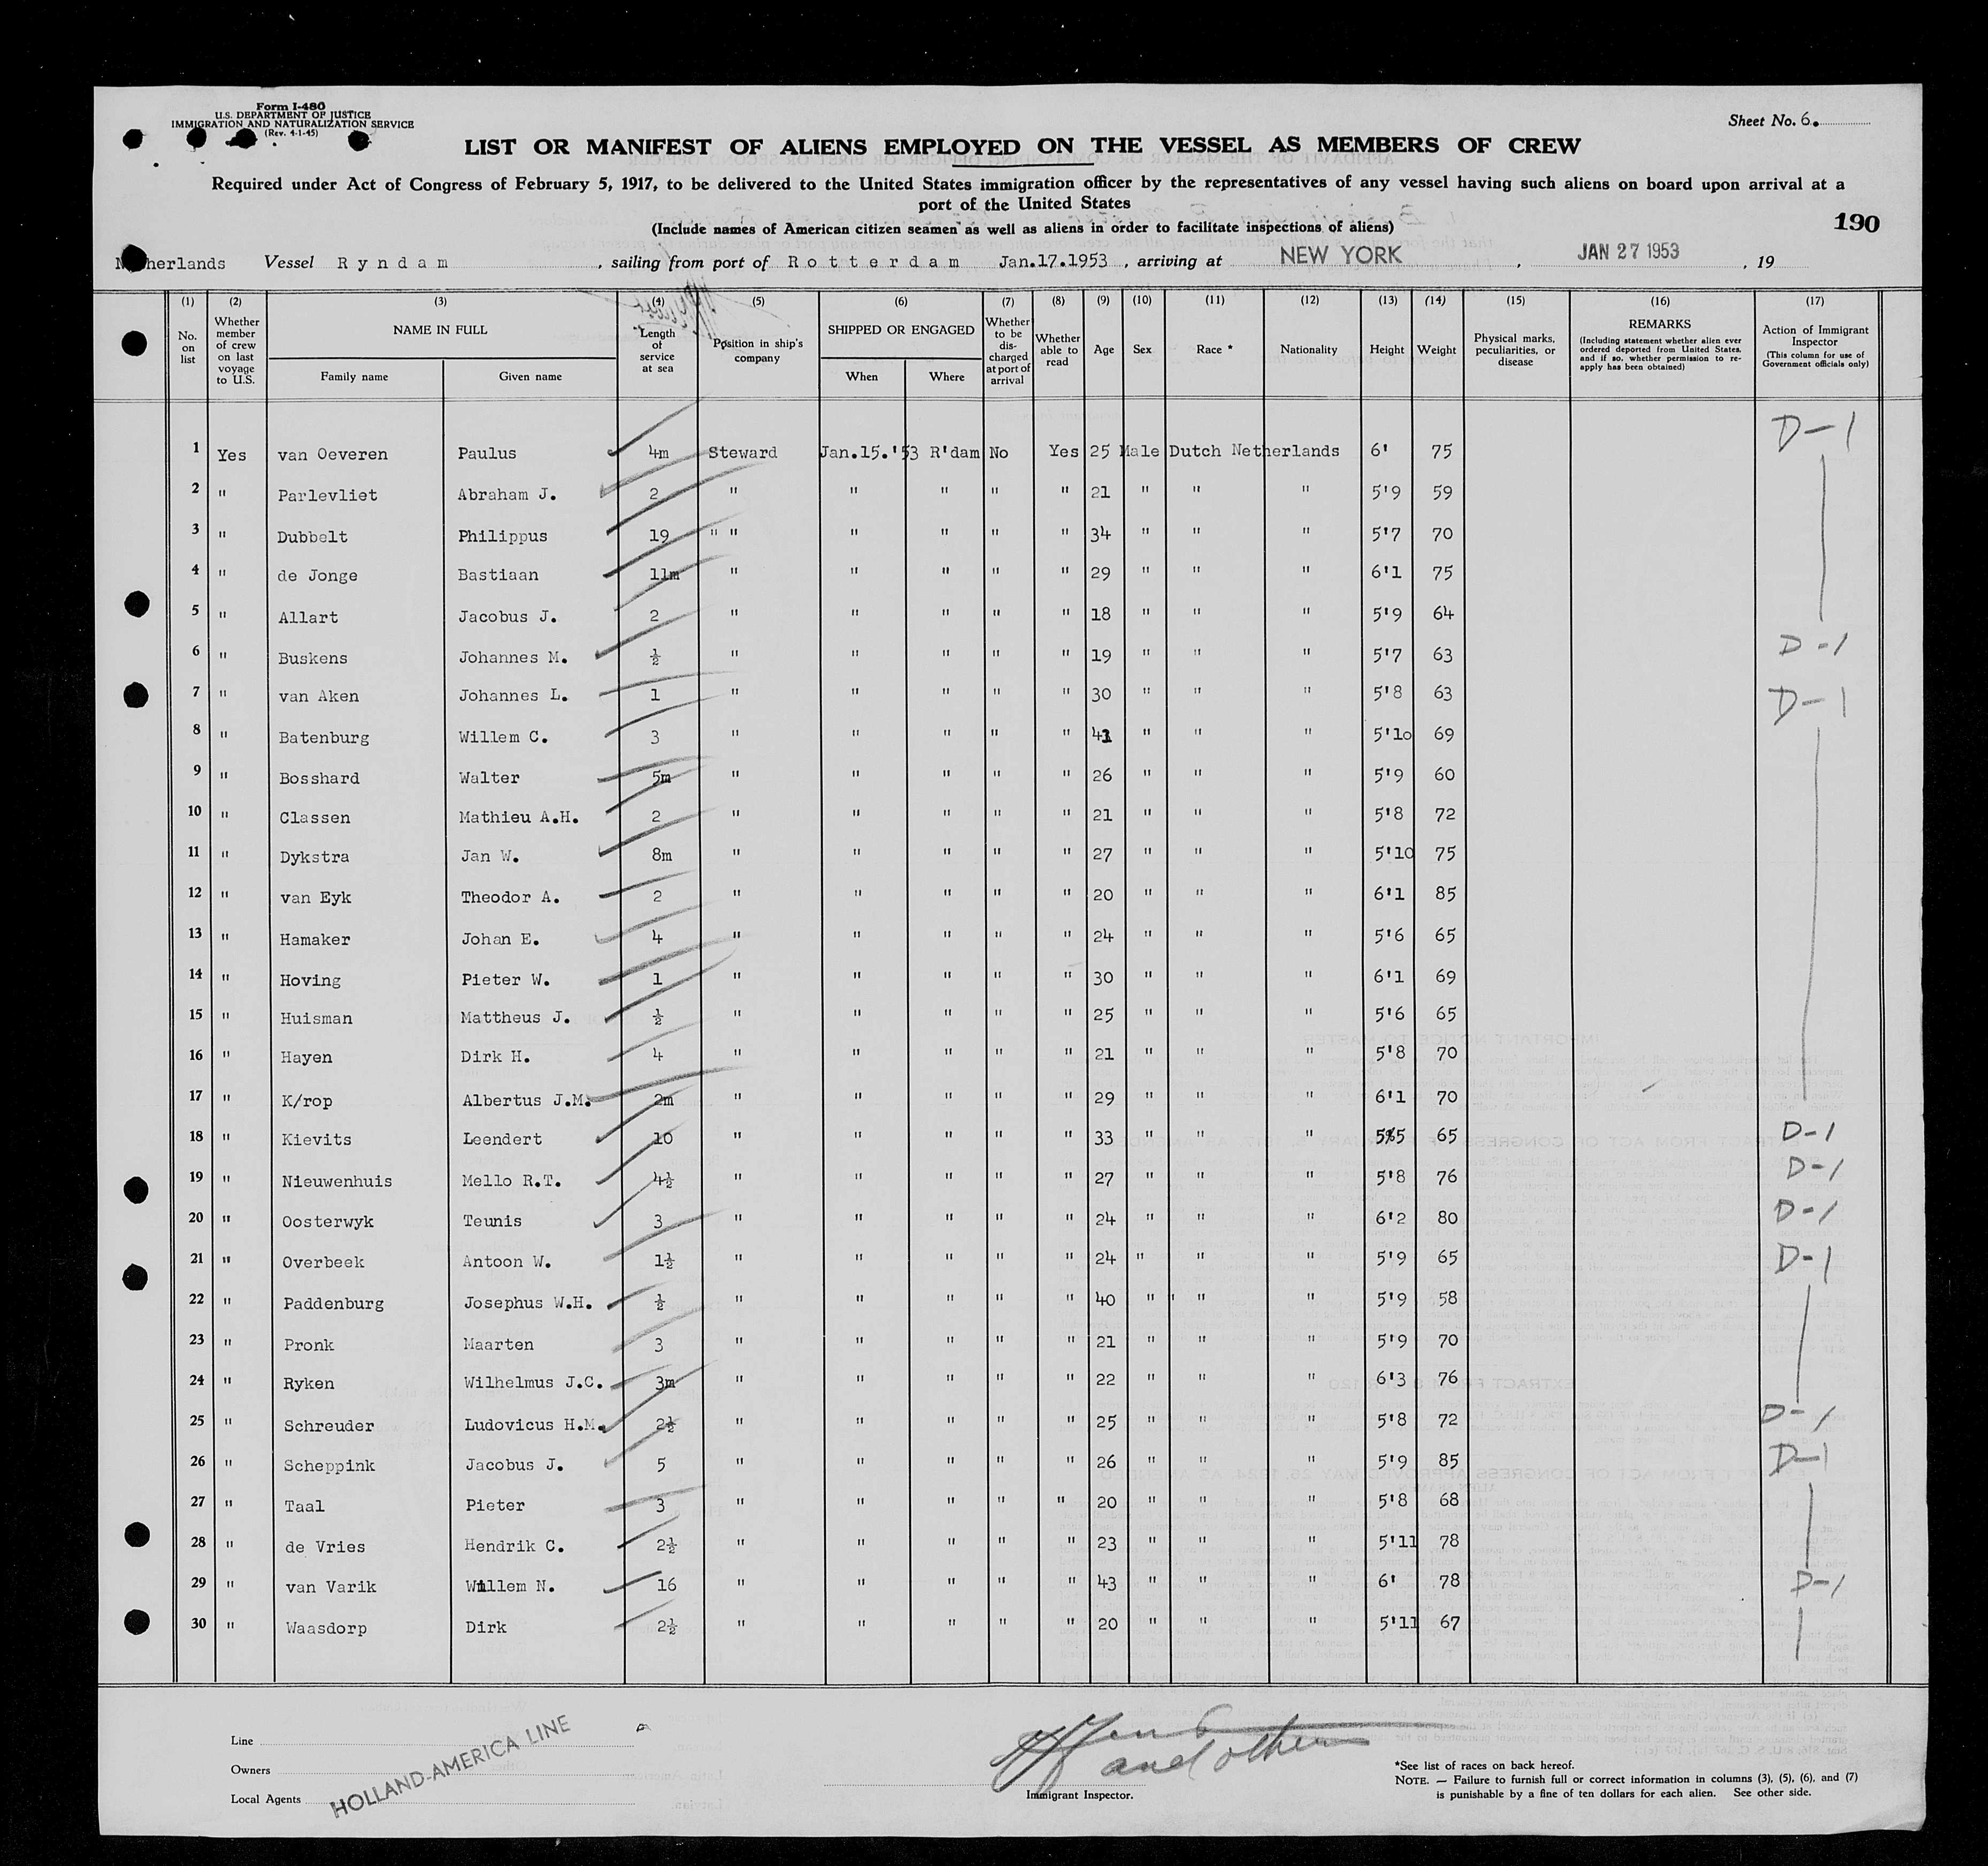 Form I-480
U.S. DEPARTMENT OF JUSTICE
IMMIGRATION AND NATURALIZATION SERVICE
(Rev. 4-1-45)
Sheet No. 6.
LIST OR MANIFEST OF ALIENS EMPLOYED ON THE VESSEL AS MEMBERS OF CREW
Required under Act of Congress of February 5, 1917, to be delivered to the United States immigration officer by the representatives of any vessel having such aliens on board upon arrival at a
port of the United States
190
(Include names of American citizen seamen as well as aliens in order to facilitate inspections of aliens)
Netherlands Vessel Ryndam, sailing from port of Rotterdam Jan.17.1953, arriving at NEW YORK, JAN 27 1953, 19
(1) (2) (3) (4) (5) (6) (7) (8) (9) (10) (11) (12) (13) (14) (15) (16) (17)
No. on list | Whether member of crew on last voyage to U.S. | NAME IN FULL | Family name | Given name | Length of service at sea | Position in ship's company | SHIPPED OR ENGAGED | When | Where | Whether to be discharged at port of arrival | Whether able to read | Age | Sex | Race * | Nationality | Height | Weight | Physical marks, peculiarities, or disease | REMARKS (Including statement whether alien ever ordered deported from United States, and if so, whether permission to re-apply has been obtained) | Action of Immigrant Inspector (This column for use of Government officials only)
1 Yes van Oeveren Paulus 4m Steward Jan.15.'53 R'dam No Yes 25 Male Dutch Netherlands 6' 75 D-1
2 " Parlevliet Abraham J. 2 " " " " " 21 " " " 5'9 59
3 " Dubbelt Philippus 19 " " " " " " 34 " " " 5'7 70
4 " de Jonge Bastiaan 11m " " " " " 29 " " " 6'1 75
5 " Allart Jacobus J. 2 " " " " " 18 " " " 5'9 64
6 " Buskens Johannes M. ½ " " " " " 19 " " " 5'7 63 D-1
7 " van Aken Johannes L. 1 " " " " " 30 " " " 5'8 63 D-1
8 " Batenburg Willem C. 3 " " " " " " " " 5'10 69
9 " Bosshard Walter 5m " " " " " 26 " " " 5'9 60
10 " Classen Mathieu A.H. 2 " " " " " 21 " " " 5'8 72
11 " Dykstra Jan W. 8m " " " " " 27 " " " 5'10 75
12 " van Eyk Theodor A. 2 " " " " " 20 " " " 6'1 85
13 " Hamaker Johan E. 4 " " " " " 24 " " " 5'6 65
14 " Hoving Pieter W. 1 " " " " " 30 " " " 6'1 69
15 " Huisman Mattheus J. ½ " " " " " 25 " " " 5'6 65
16 " Hayen Dirk H. 4 " " " " " 21 " " " 5'8 70
17 " K/rop Albertus J.M. 2m " " " " " 29 " " " 6'1 70
18 " Kievits Leendert 10 " " " " " 33 " " " 5'5 65 D-1
19 " Nieuwenhuis Mello R.T. 4½ " " " " " 27 " " " 5'8 76 D-1
20 " Oosterwyk Teunis 3 " " " " " 24 " " " 6'2 80 D-1
21 " Overbeek Antoon W. 1½ " " " " " 24 " " " 5'9 65 D-1
22 " Paddenburg Josephus W.H. ½ " " " " " 40 " " " " 5'9 58
23 " Pronk Maarten 3 " " " " " 21 " " " 5'9 70
24 " Ryken Wilhelmus J.C. 3m " " " " " 22 " " " 6'3 76
25 " Schreuder Ludovicus H.M. 2½ " " " " " 25 " " " 5'8 72 D-1
26 " Scheppink Jacobus J. 5 " " " " " 26 " " " 5'9 85 D-1
27 " Taal Pieter 3 " " " " " 20 " " " 5'8 68
28 " de Vries Hendrik C. 2½ " " " " " 23 " " " 5'11 78
29 " van Varik Willem N. 16 " " " " " 43 " " " 6' 78 D-1
30 " Waasdorp Dirk 2½ " " " " " 20 " " " 5'11 67
Line
Owners
Local Agents
HOLLAND-AMERICA LINE
and others
Immigrant Inspector.
*See list of races on back hereof.
NOTE. — Failure to furnish full or correct information in columns (3), (5), (6), and (7)
is punishable by a fine of ten dollars for each alien. See other side.